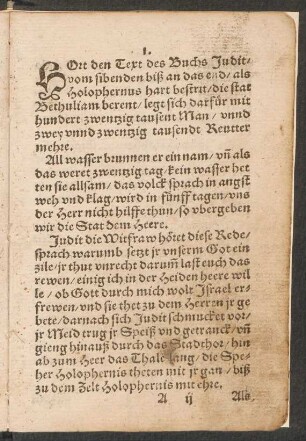 1.
HOrt den Text des Buchs Judit/
vom sibenden biß an das end/ als
Holophernus hart bestrit/ die stat
Bethuliam berent/ legt sich darfür mit
hundert zwentzig tausent Man/ vnnd
zwey vnnd zwentzig tausendt Reutter
mehre.
All wasser brunnen er ein nam/ vñ als
das weret zwentzig tag/ kein wasser het
ten sie allsam/ das volck sprach in angst
weh vnd klag/ wird in fünff tagen/ vns
der Herr nicht hilffe thun/ so vbergeben
wir die Stat dem Heere.
Judit die Witfraw höret diese Rede/
sprach warumb setzt jr vnserm Got ein
zile/ jr thut vnrecht darumb last euch das
rewen/ einig ich in der Heiden heere wil
le/ ob Gott durch mich wolt Israel er-
frewen/ vnd sie thet zu dem Herren jr ge
bete/ darnach sich Judit schmucket vor/
jr Meid trug jr Speiß vnd getranck/ vñ
gieng hinauß durch das Stadthor/ hin
ab zum Heer das Thale lang/ die Spe-
her Holophernis theten mit jr gan/ biß
zu dem Zelt Holophernis mit ehre.
A ij Als